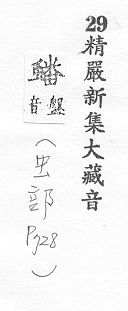 29精嚴新集大藏音
蟠
音盤
（虫部
P728）